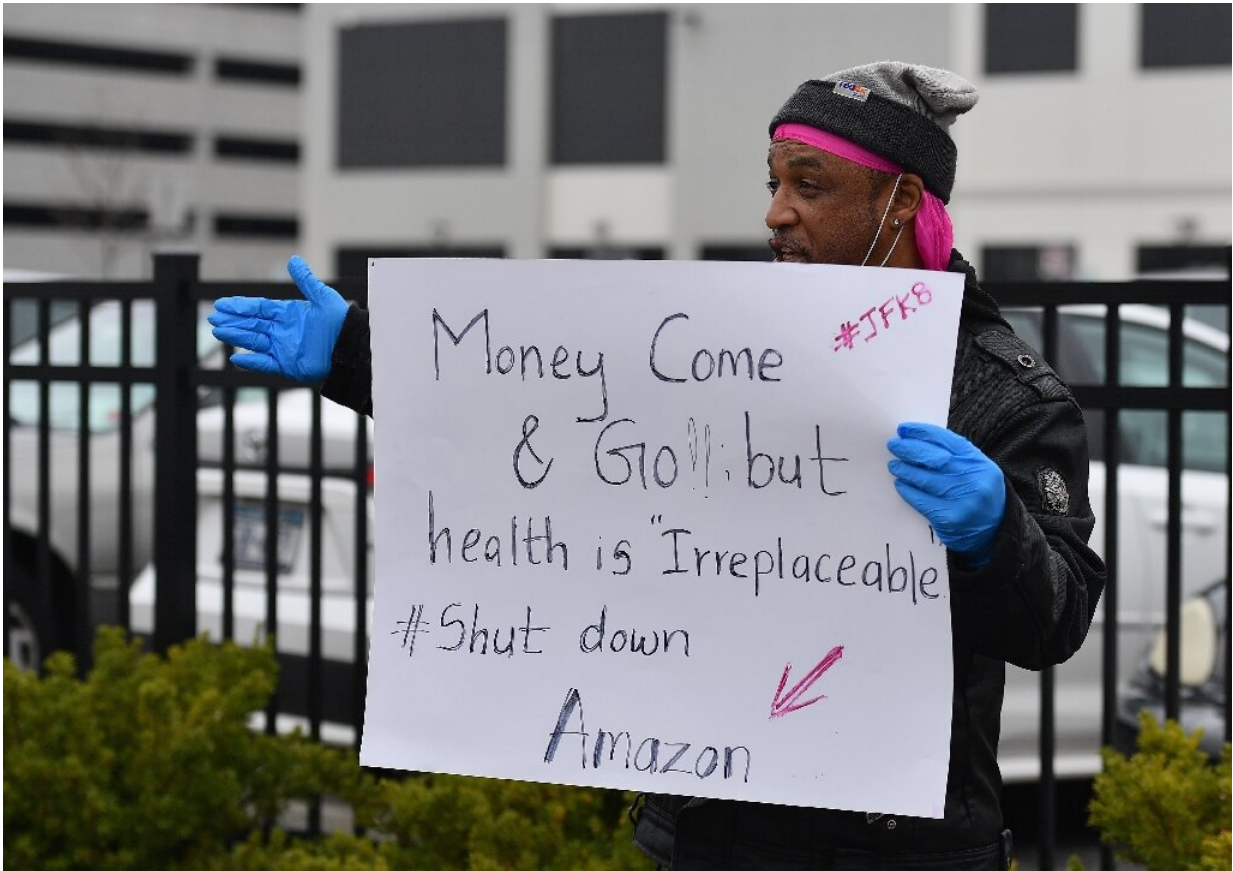 FedEx
#JFK8
Money Come
& Go!!; but
health is "Irreplaceable".
#Shut down
Amazon